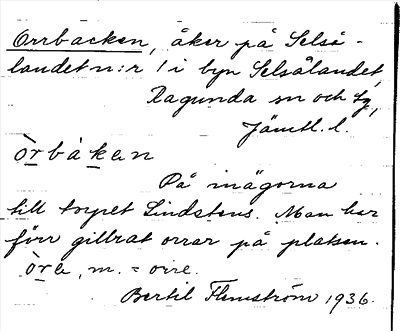 Orrbacken, åker på Selså-
landet n:r 1 i byn Selsålandet,
Ragunda sn och tg,
Jämtl. l.
òrbàken
På inägorna
till torpet Lindstens. Man har
förr gillrat orrar på platsen.
òre, m. = orre.
Bertil Flemström 1936.